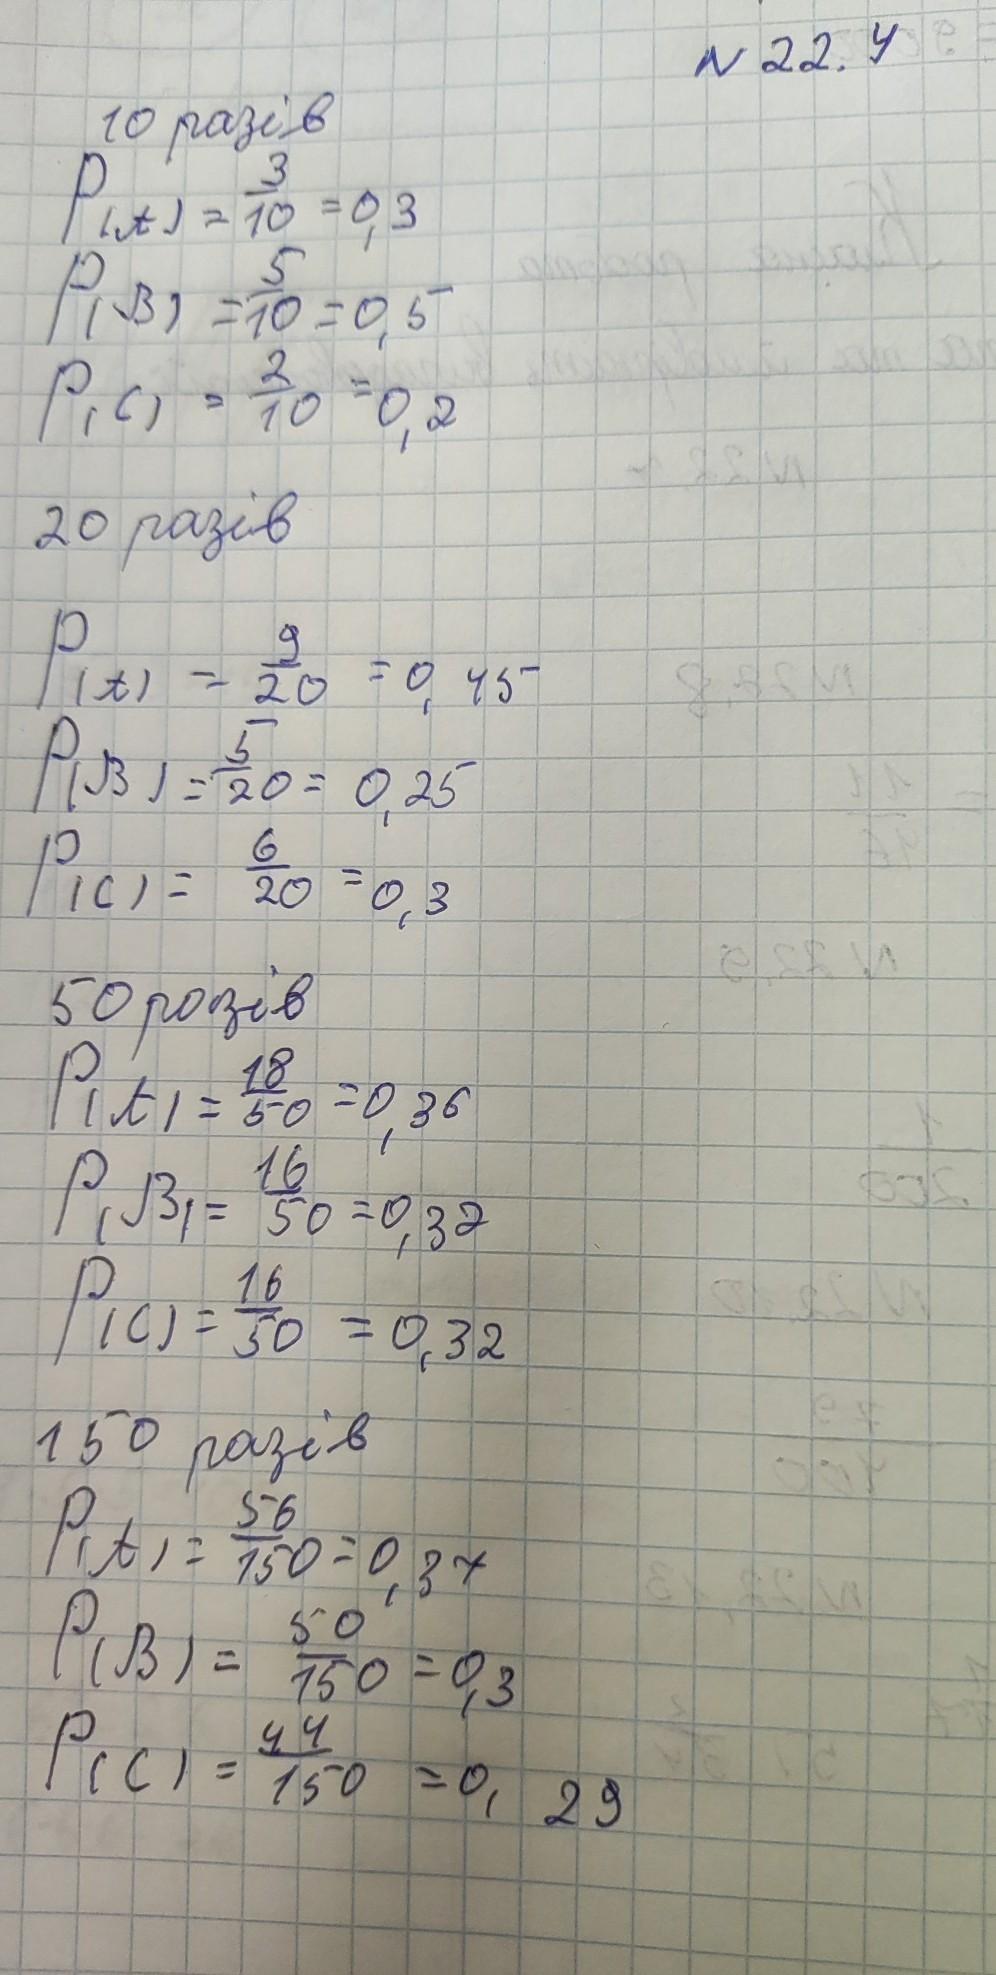 N 22.4
10 разів
P(A) = 3/10 = 0,3
P(B) = 5/10 = 0,5
P(C) = 2/10 = 0,2
20 разів
P(A) = 9/20 = 0,45
P(B) = 5/20 = 0,25
P(C) = 6/20 = 0,3
50 разів
P(A) = 18/50 = 0,36
P(B) = 16/50 = 0,32
P(C) = 16/50 = 0,32
150 разів
P(A) = 56/150 = 0,37
P(B) = 50/150 = 0,3
P(C) = 44/150 = 0,29